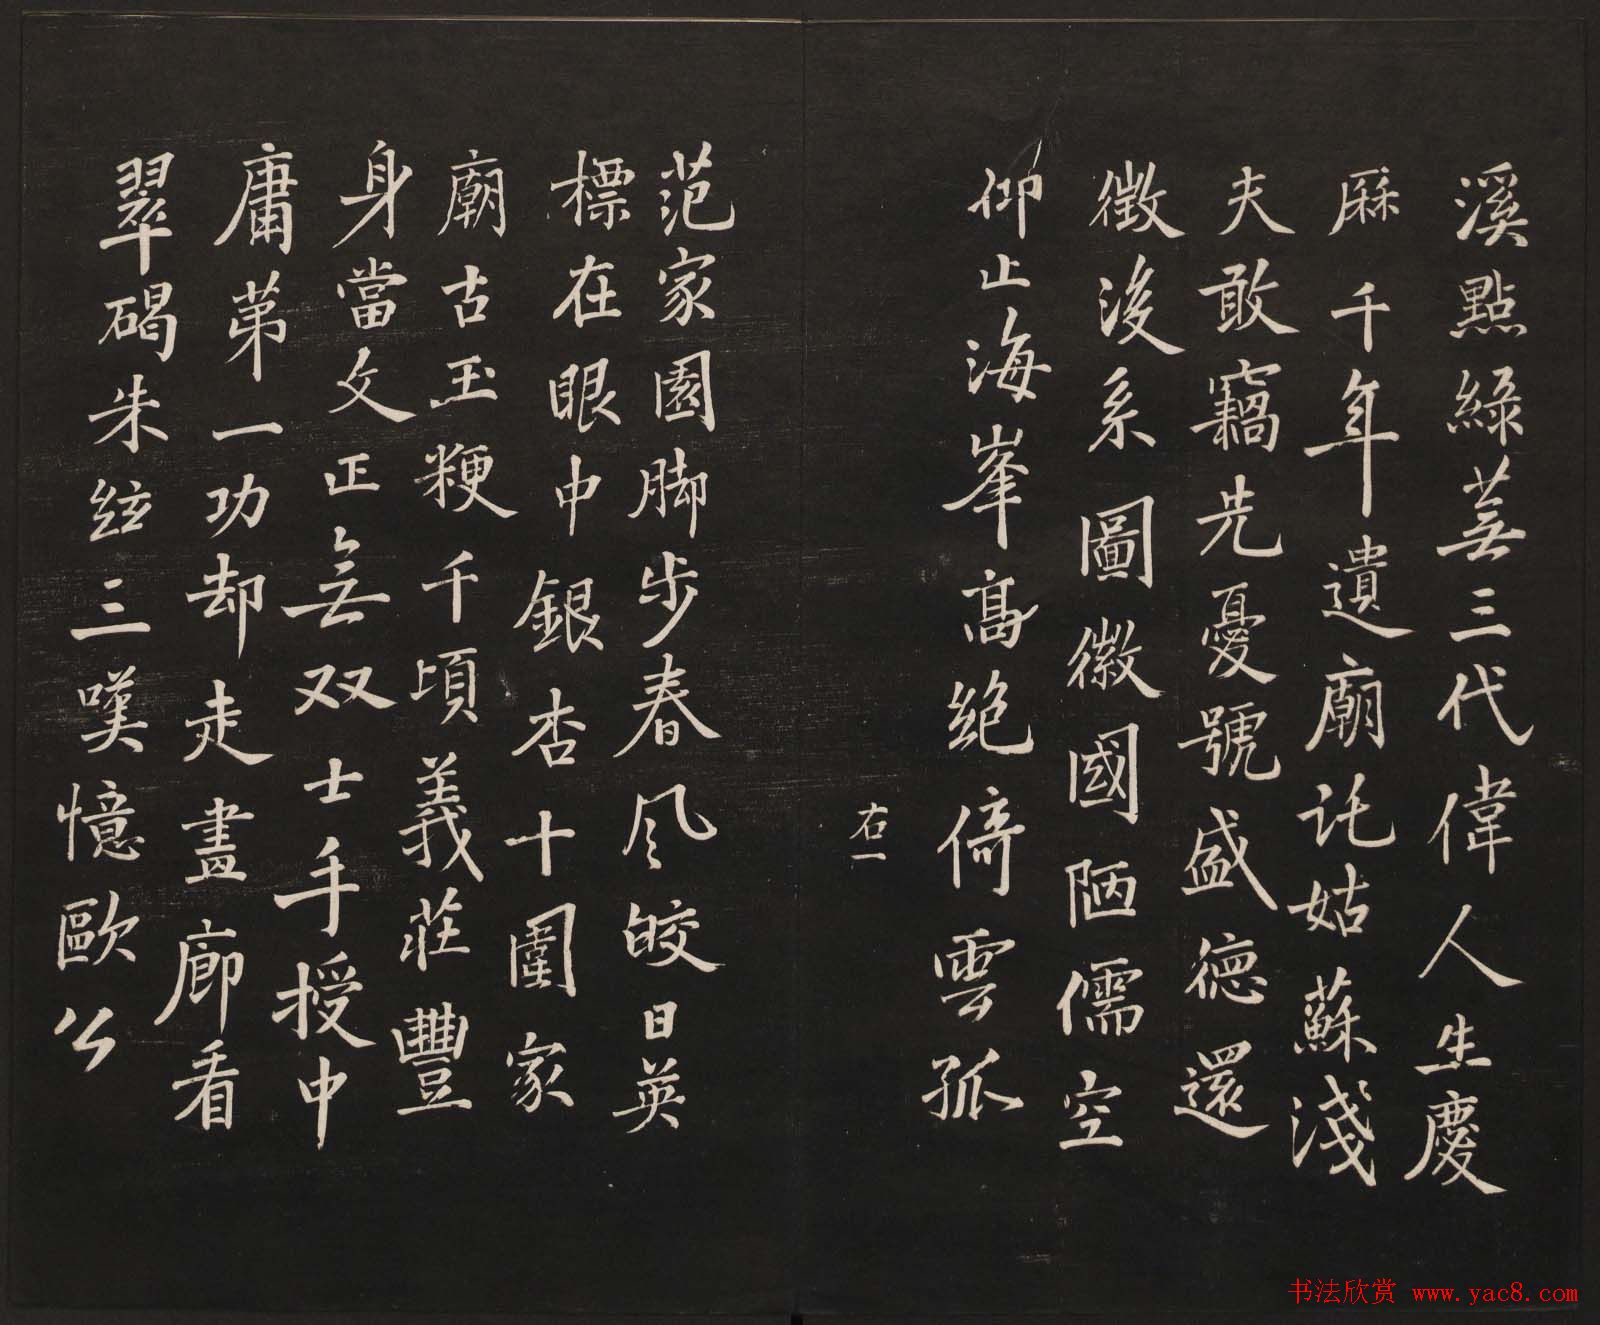 溪點綠蕪三代偉人生慶
厤千年遺廟託姑蘇淺
夫敢竊先憂號盛德還
徵後系圖徽國陋儒空
仰止海峯高絶倚雲孤
右一
范家園脚步春风皎日英
標在眼中銀杏十圍家
廟古玉粳千頃義莊豐
身當文正無双士手授中
庸弟一功却走畫廊看
翠碣朱絃三嘆憶歐公
书法欣赏 www.yac8.com